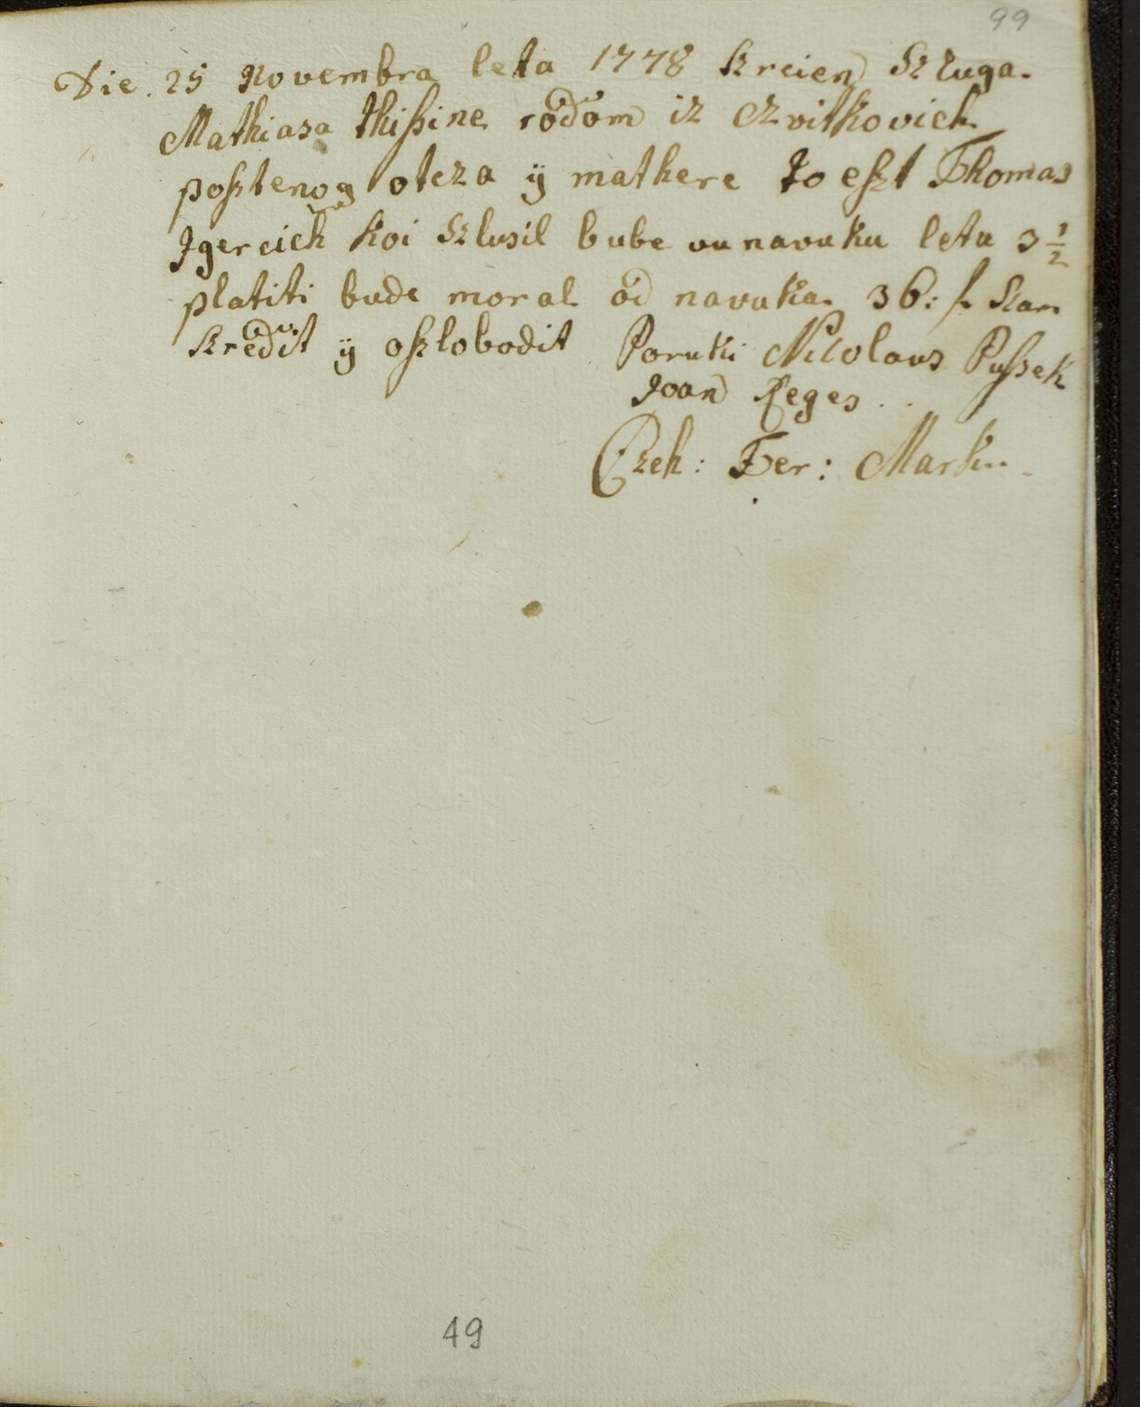 99
Die. 25 Novembra leta 1778 kreien Szluga
Mathiasa thißine rodom iz Czvitkovich
poßtenog otcza ÿ mathere to eßt Thomas
Jgercich koi Szlusil bube vu navuku leta 3 1/2
platiti bude moral od navuka 36: f. Szam
Szredit ÿ oßlobodit Poruki Nicolaus Pußek
Joan Reges
Czeh: Fer: Markn
49